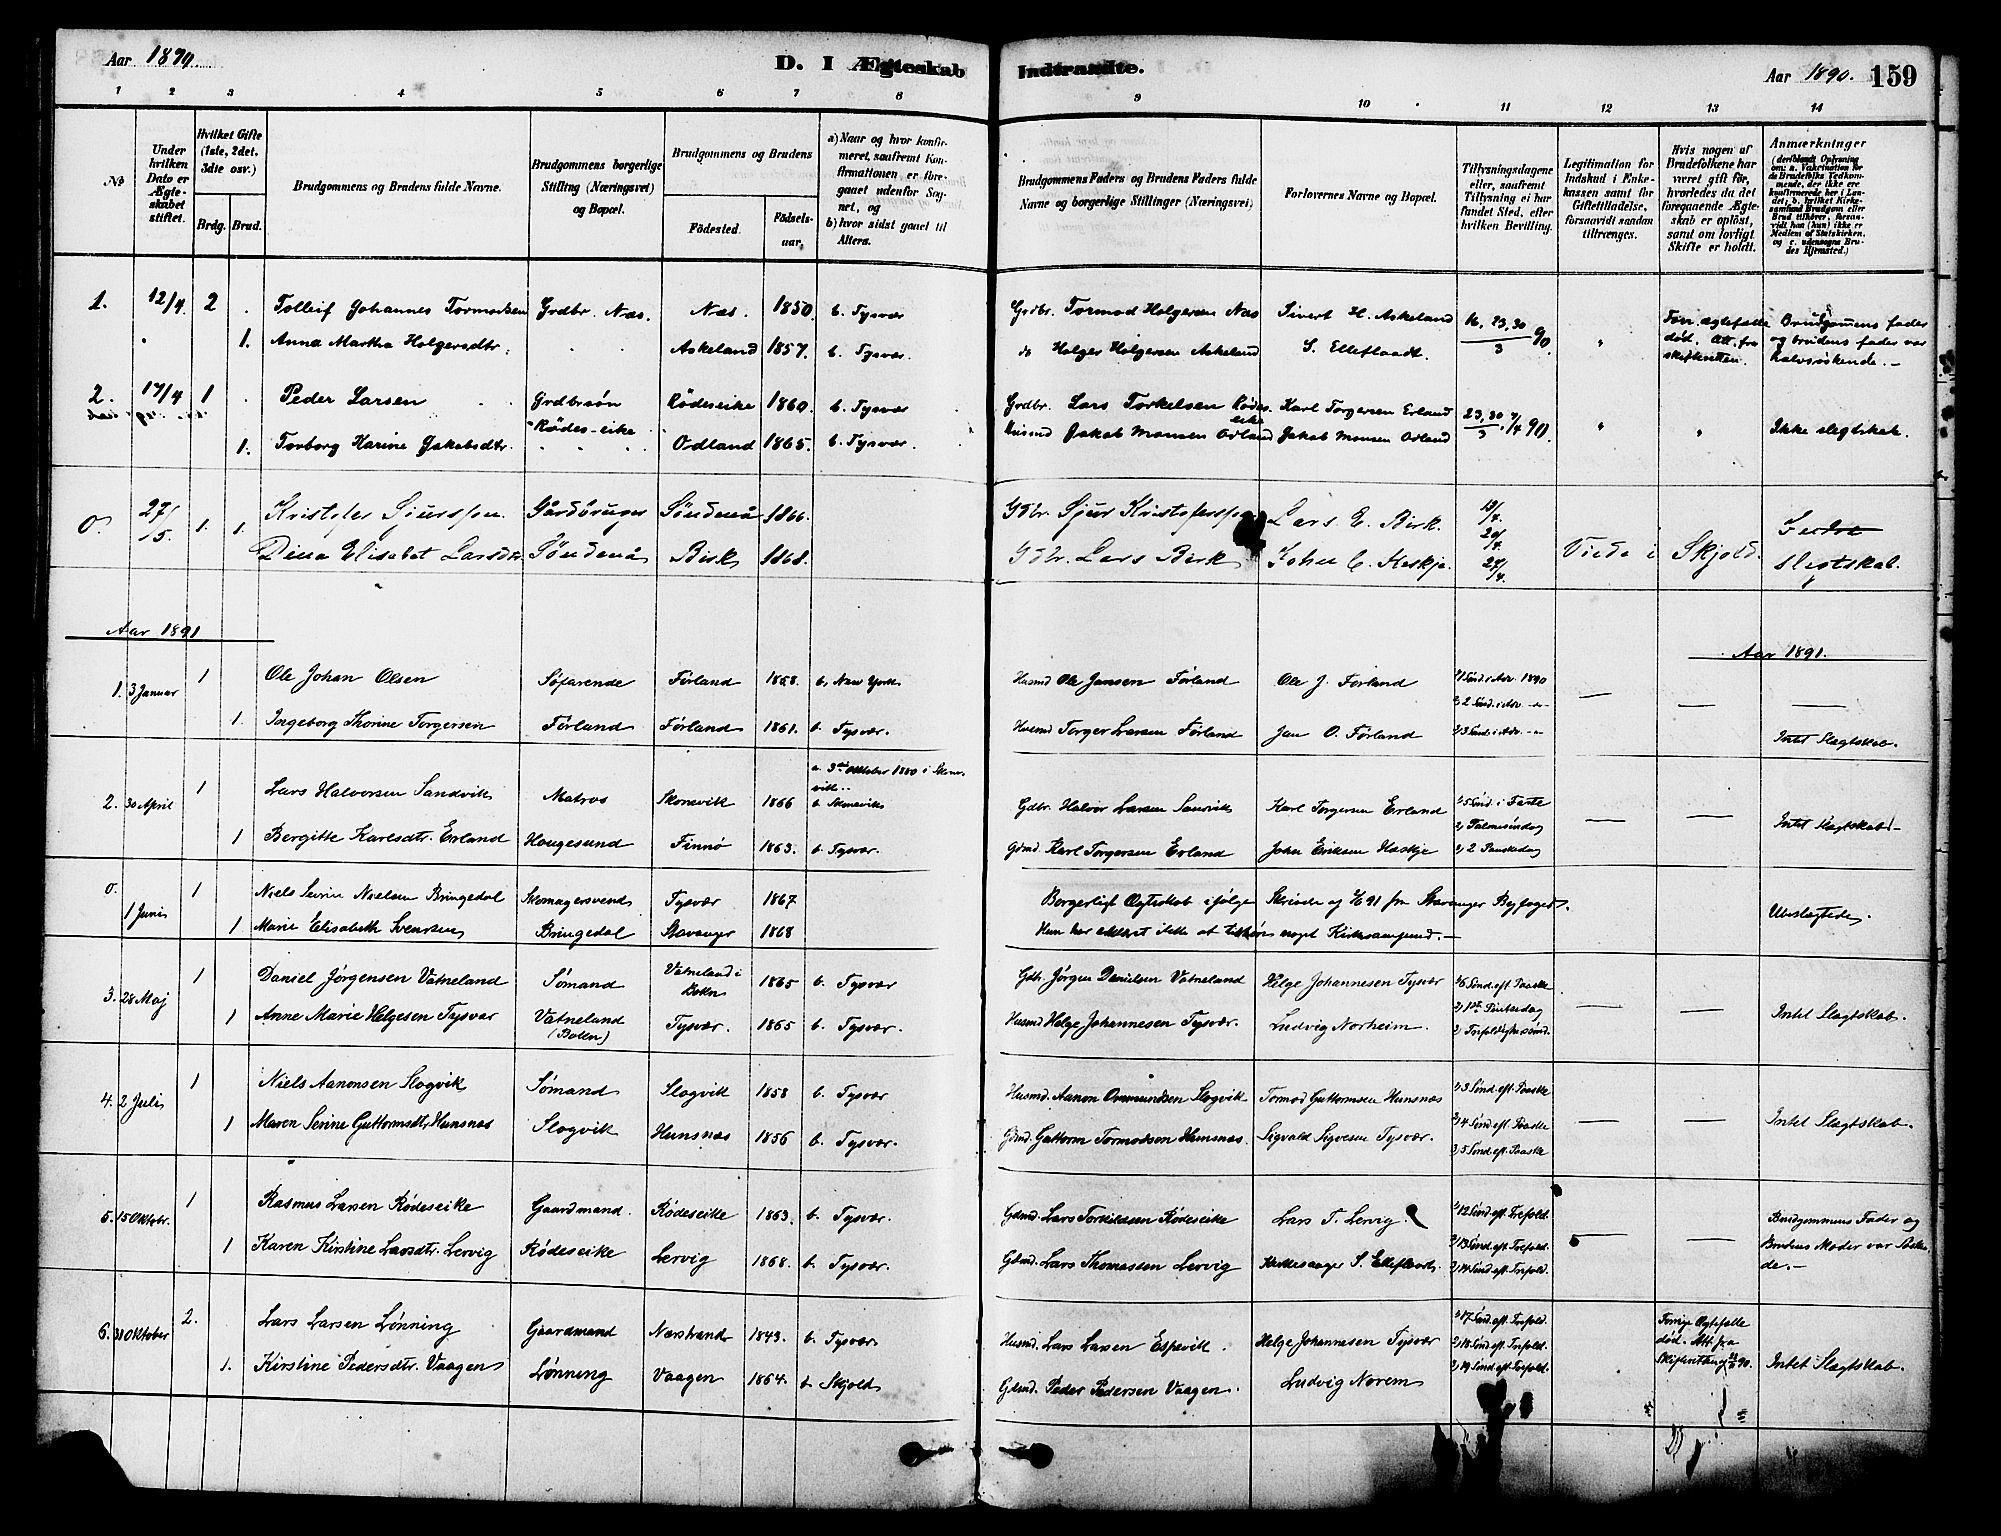 Aar 1879.
D. I Ægteskab Indtraadte.
Aar 1890. 159
1 2 3 4 5 6 7 8 9 10 11 12 13 14
No
Under hvilken Dato er Ægteskabet stiftet.
Hvilket Gifte (1ste, 2det, 3die osv.)
Brdg. Brud.
Brudgommens og Brudens fulde Navne.
Brudgommens borgerlige Stilling (Næringsvei) og Bopæl.
Brudgommens og Brudens
Fødested.
Fødselsaar.
a) Naar og hvor konfirmeret, saafremt Konfirmationen er foregaaet udenfor Sognet, og
b) hvor sidst gaaet til Alters.
Brudgommens Faders og Brudens Faders fulde Navne og borgerlige Stillinger (Næringsvei)
Forlovernes Navne og Bopæl.
Tillysningsdagene eller, saafremt Tillysning ei har fundet Sted, efter hvilken Bevilling.
Legitimation for Indskud i Enkekassen samt for Giftetilladelse, forsaavidt saadan tiltrænges.
Hvis nogen af Brudefolkene har været gift før, hvorledes da det foregaaende Ægteskab er opløst, samt om lovligt Skifte er holdt.
Anmærkninger
1. 12/4. 2 . Tolleif Johannes Tormodsen Grdbr. Næs. Næs. 1850. b. Tysvær Grdbr. Tormod Holgersen Næs Sivert H. Askeland 16, 23, 30/3 90. " Forr. ægtefælle død. Att. fra skifteretten. Brudgomens fader og brudens fader var halvsøskende.-
" 1. Anna Martha Holgersdtr. " " Askeland 1857. b. Tysvær. do Holger Holgersen Askeland S. Elleflaadt.
2. 17/4 1 . Peder Larsen Grdbrsøn Rødeseike Rødeseike 1860. b. Tysvær Grdbr. Lars Torkelsen Rødeseike Karl Torgersen Erland 23, 30/3, 7/4 90. " " Ikke slegtskab.
1. Torborg Karine Jakobsdtr. " " Odland 1865. b. Tysvær Husmd Jakob Monsen Odland Jakob Monsen Odland
0. 27/5. 1. Kristofer Sjursson. Gårdbruger Søndenå 1866. Gdbr. Sjur Kristofersson Lars E. Birk. 13/4. 20/4. 27/4. Viede i Skjold.
1 Dina Elisabet Larsdtr. Søndenå Birk 1868. Gdbr. Lars Birk John E. Heskje. slegtskab.
Aar 1891
Aar 1891.
1. 3 Januar 1 Ole Johan Olsen Søfarende Førland 1858. b. New York Husmd Ole Jansen Førland Ole J. Førland 1) 1 Sønd. i Adv. 1890 — — —
1. Ingeborg Thorine Torgersen Førland Førland 1861. b. Tysvær. Husmd Torger Larsen Førland Jan O. Førland 2) 2 Sønd. i Adv. -"- 3) 3 Sønd. i Adv. -"- Intet Slægtskab.
2. 30 April 1 Lars Halvorsen Sandvik Matros Skonevik 1866 a. 3die Oktober 1880 i Skonevik.. b. Skonevik Gdbr. Halvor Larsen Sandvik Karl Torgersen Erland 1) 5 Sønd. i Faste — — Intet Slægtskab.-
1 Bergitte Karlsdtr. Erland Haugesund Finnø 1863. b. Tysvær. Gdmd. Karl Torgersen Erland John Eriksen Heskje 2) Palmesøndag 3) 2 Paaskedag
0. 1 Juni 1 Niels Severin Nielsen Bringedal Skomagersvend Tysvær 1867 Borgerligt Ægteskab ifølge Skrivelse af 1/6 91 fra Stavanger Byfoged. Ubeslægtede.
1 Marie Elisabeth Svensen Bringedal Stavanger 1868 Hun har erklæret ikke at tilhøre noget Kirkesamfund.-
3. 28 Maj 1 Daniel Jørgensen Vatneland Sømand Vatneland i Bokn 1865 b. Tysvær Gdb. Jørgen Danielsen Vatneland Helge Johannesen Tysvær 1) 6 Sønd. eft. Paaske — — Intet Slægtskab.
1 Anne Marie Helgesen Tysvær Vatneland (Bokn) Tysvær. 1865 b. Tysvær. Husmd Helge Johannesen Tysvær. Ludvig Norheim. 2) 1ste Pintsedag 3) Trefoldighedssønd.
4. 2 Juli 1 Niels Aanonsen Slogvik Sømand Slogvik 1858 b. Tysvær Husmd. Aanon Ommundsen Slogvik Tormod Guttormsen Hunsnæs 1) 3 Sønd. eft. Paaske — — Intet Slægtskab.
1 Maren Serine Guttormsdtr. Hunsnæs Slogvik Hunsnæs 1856 b. Tysvær. Gdmd. Guttorm Tormodsen Hunsnæs. Sigvald Sigvesen Tysvær. 2) 4 Sønd. eft. Paaske 3) 5 Sønd. eft. Paaske
5. 15 Oktobr. 1 Rasmus Larsen Rødeseike Gaardmand. Rødeseike 1863. b. Tysvær. Gdmd. Lars Torkilsen Rødeseike Lars T. Lervig. 1) 12 Sønd. eft. Trefold. — — Brudgommens Fader og Brudens Moder var Søskende.-
1 Karen Kirstine Larsdtr. Lervig Rødeseike Lervig 1868. b. Tysvær. Gdmd. Lars Thomassen Lervig Kirkesanger S. Elleflaadt. 2) 13 Sønd. eft. Trefold. 3) 14 Sønd. eft. Trefold.
6. 31 Oktober 2. Lars Larsen Lønning Gaardmand Nærstrand 1843. b. Tysvær. Husmd. Lars Larsen Espevik Helge Johannesen Tysvær 1) 17 Sønd. eft. Trefold. Forrige Ægtefælle død. Att. fra Skifteretten 90. Intet Slægtskab.
1. Kirstine Pedersdtr. Vaagen Lønning Vaagen 1864. b. Skjold Gdmd. Peder Pedersen Vaagen. Ludvig Norem 2) 18 Sønd. eft. Trefold. 3) 19 Sønd. eft. Trefold.